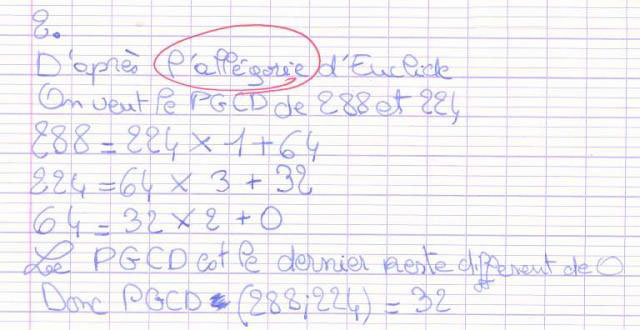 2.
D'après l'allégorie d'Euclide
On veut le PGCD de 288 et 224
288 = 224 × 1 + 64
224 = 64 × 3 + 32
64 = 32 × 2 + 0
Le PGCD est le dernier reste different de 0
Donc PGCD (288;224) = 32